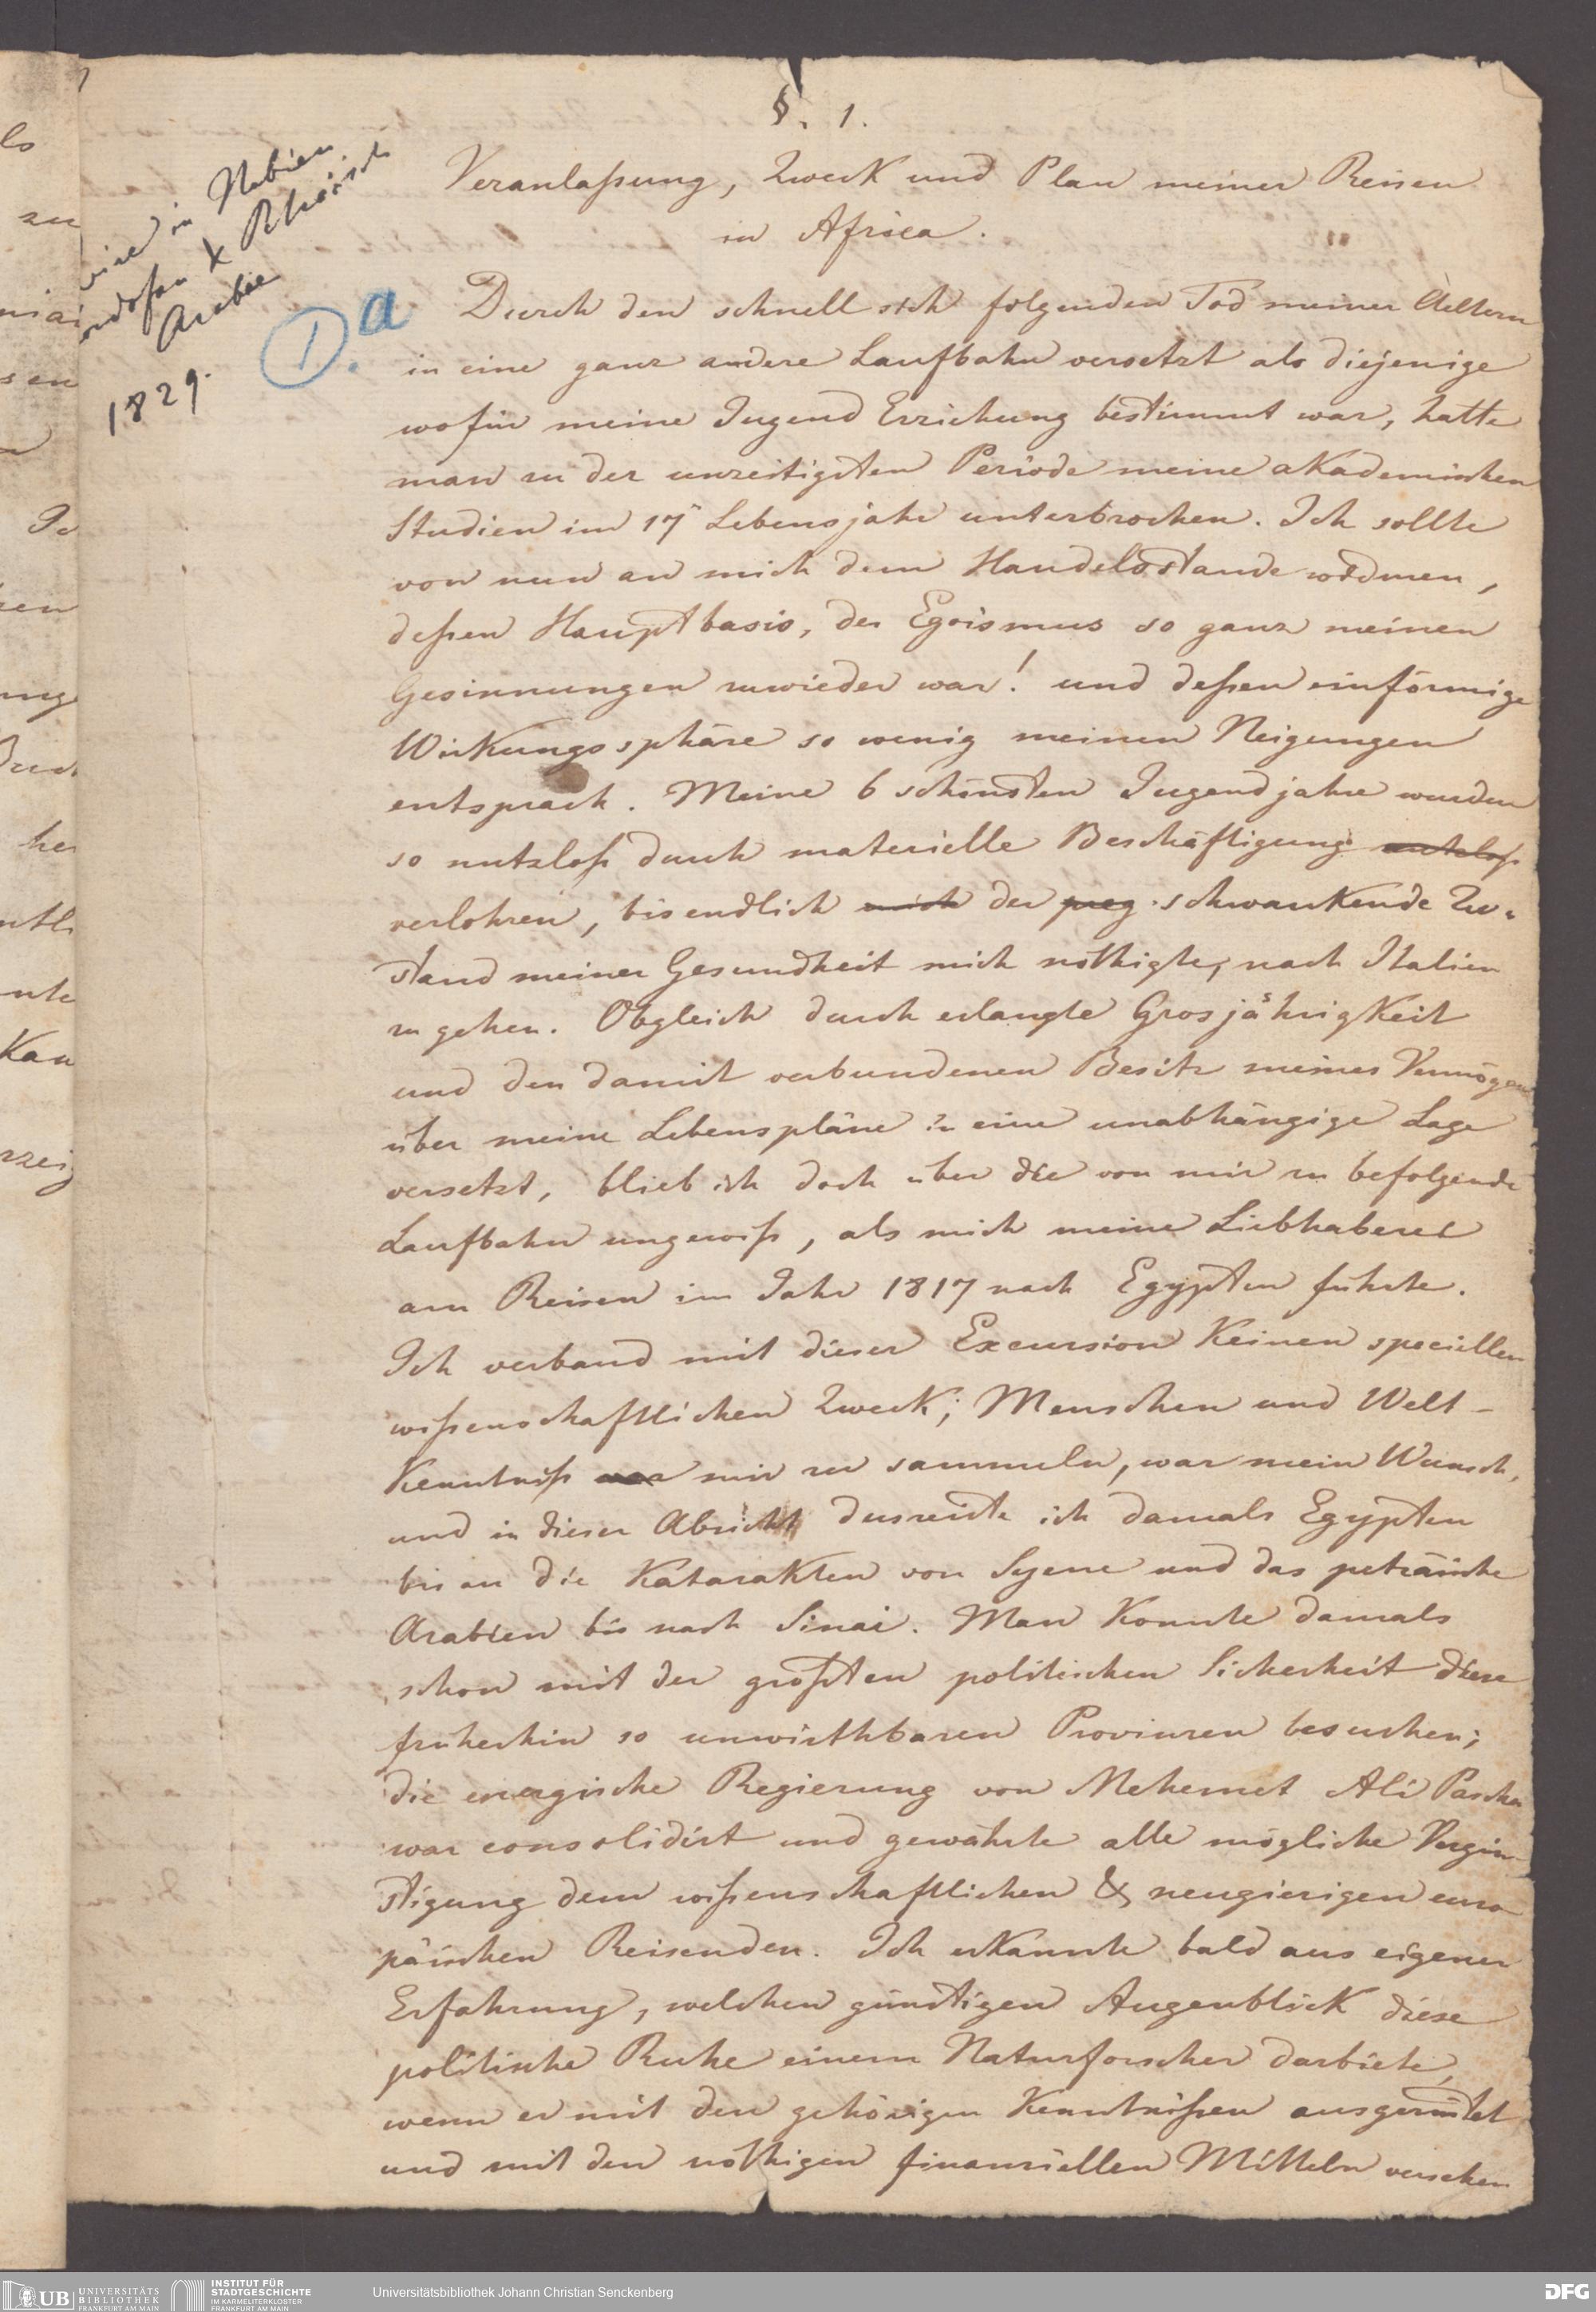 §. 1.
Veranlaßung, Zweck und Plan meiner Reisen
in Africa.
in Nubien
& 
Arabie
1829.
1. a
Durch den schnell sich folgenden Tod meiner Aeltern
in eine ganz andere Laufbahn versetzt als diejenige
wofür meine Jugend Erziehung bestimmt war, hatte
man zu der unzeitigsten Periode meine akademischen
Studien im 17 Lebensjahr unterbrochen. Ich sollte
von nun an mich dem Handelsstande widmen,
deßen Hauptbasis, der Egoismus so ganz meinen
Gesinnungen zuwieder war! und deßen einförmige
Wirkungssphäre so wenig meinen Neigungen
entsprach. Meine 6 schönsten Jugendjahre wurden
so nutzloß durch materielle Beschäftigung nutzloß
verlohren, bis endlich mich der schwankende Zu-
stand meiner Gesundheit mich nöthigte, nach Italien
zu gehen. Obgleich durch erlangte Grosjährigkeit
und den damit verbundenen Besitz meines Vermögens
über meine Lebenspläne in eine unabhängige Lage
versetzt, blieb ich doch über die von mir zu befolgende
Laufbahn ungewiß, als mich meine Liebhaberei
am Reisen im Jahr 1817 nach Egypten führte.
Ich verband mit dieser Excursion keinen speciellen
wißenschaftlichen Zweck; Menschen und Welt-
Kenntniß war mir zu sammeln, war mein Wunsch,
und in dieser Absicht dureiste ich damals Egypten
bis an die Katarakten von Syene und das peträische
Arabien bis nach Sinai. Man konnte damals
schon mit der größten politischen Sicherheit diese
früherhin so unwirthbaren Provinzen besuchen;
die energische Regierung von Mehemet Ali Pascha
war consolidirt und gewährte alle mögliche Vergün-
stigung dem wißenschaftlichen & neugierigen euro
päischen Reisenden. Ich erkannte bald aus eigener
Erfahrung, welchen günstigen Augenblick diese
politische Ruhe einem Naturforscher darbiete,
wenn er mit den gehörigen Kenntnißen ausgerüstet
und mit den nöthigen finanziellen Mitteln versehen
UB UNIVERSITÄTS
BIBLIOTHEK
FRANKFURT AM MAIN
INSTITUT FÜR
STADTGESCHICHTE
IM KARMELITERKLOSTER
FRANKFURT AM MAIN
Universitätsbibliothek Johann Christian Senckenberg
DFG